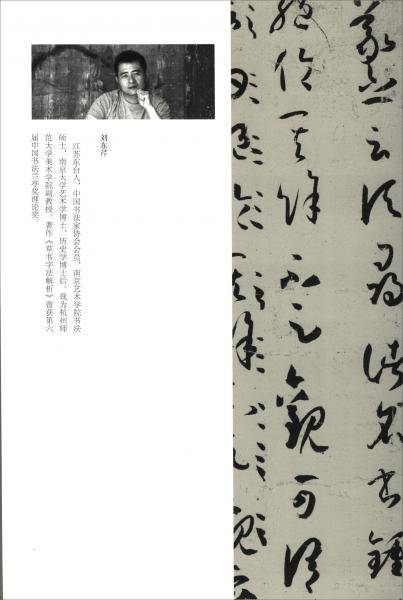 羲之云頃尋諸名書鍾
絶倫其餘不足觀可謂
刘东芹
江苏东台人，中国书法家协会会员，南京艺术学院书法
硕士，南京大学艺术学博士、历史学博士后。现为杭州师
范大学美术学院副教授。著作《草书字法解析》曾获第六
届中国书法兰亭奖理论奖。